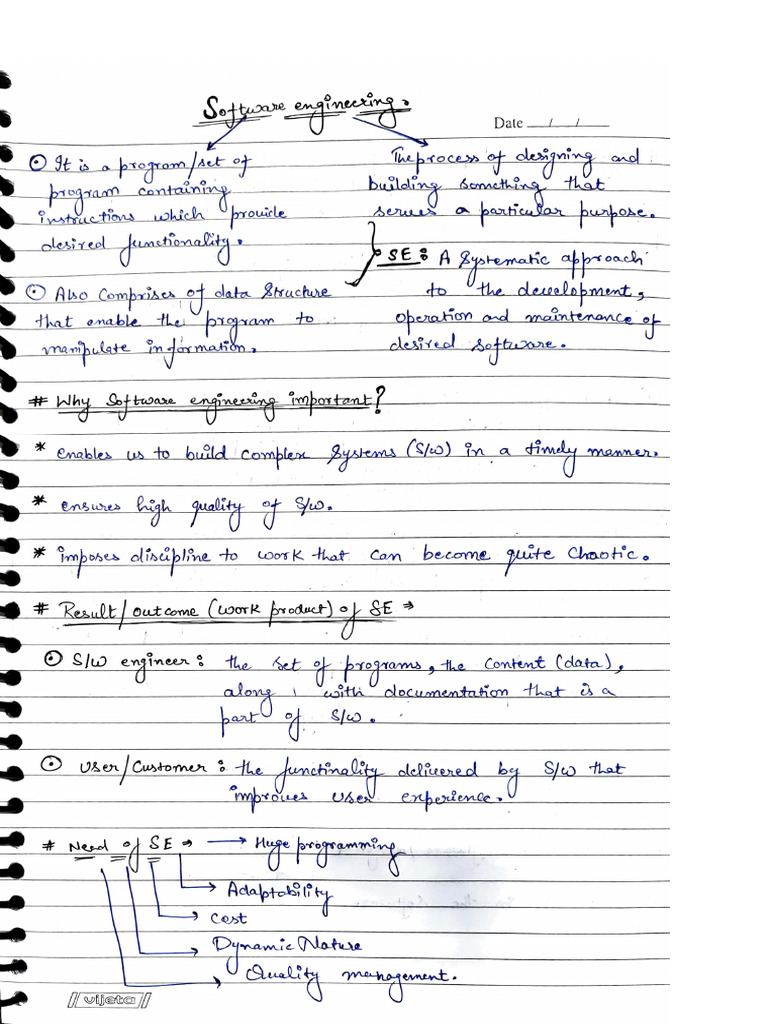 Software engineering.
Date __/__/__
⊙ It is a program/set of
program containing
instructions which provide
desired functionality.
⊙ Also Comprises of data Structure
that enable the program to
manipulate information.
The process of designing and
building something that
serves a particular purpose.
• SE: A Systematic approach
to the development,
operation and maintenance of
desired software.
# Why Software engineering important?
* enables us to build complex Systems (S/W) in a timely manner.
* ensures high quality of S/W.
* imposes discipline to work that can become quite Chaotic.
# Result/outcome (work product) of SE ⇒
⊙ S/W engineer: the set of programs, the content (data),
along with documentation that is a
part of S/W.
⊙ User/Customer: the functinality delivered by S/W that
improves user experience.
# Need of SE ⇒ → Huge programming
→ Adaptability
→ Cost
→ Dynamic Nature
→ Quality management.
vijeta